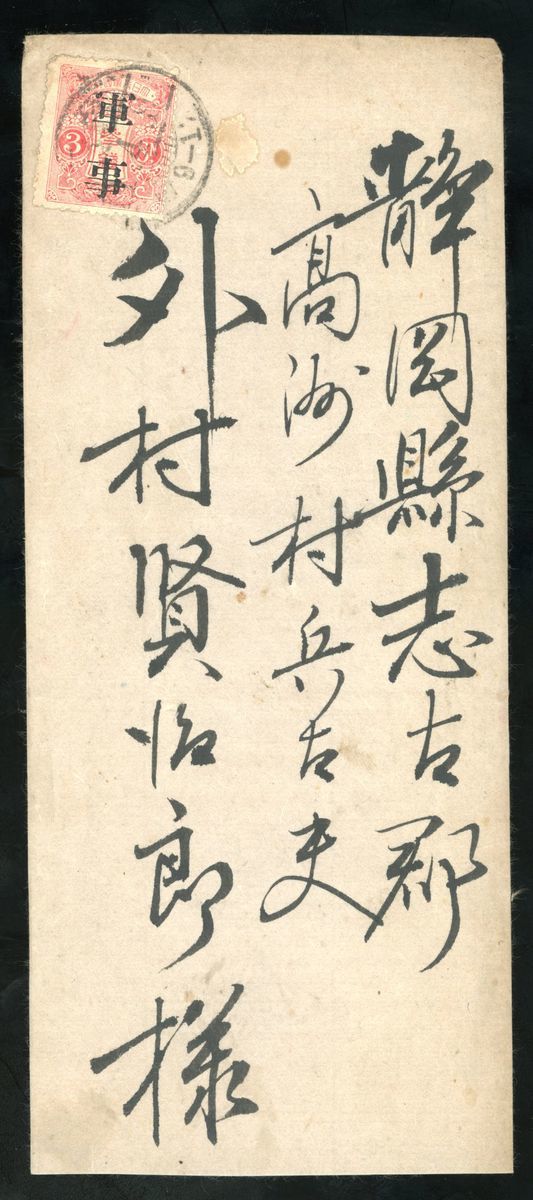 静岡縣志太郡
高洲村兵太夫
外村賢治郎様
軍事
3